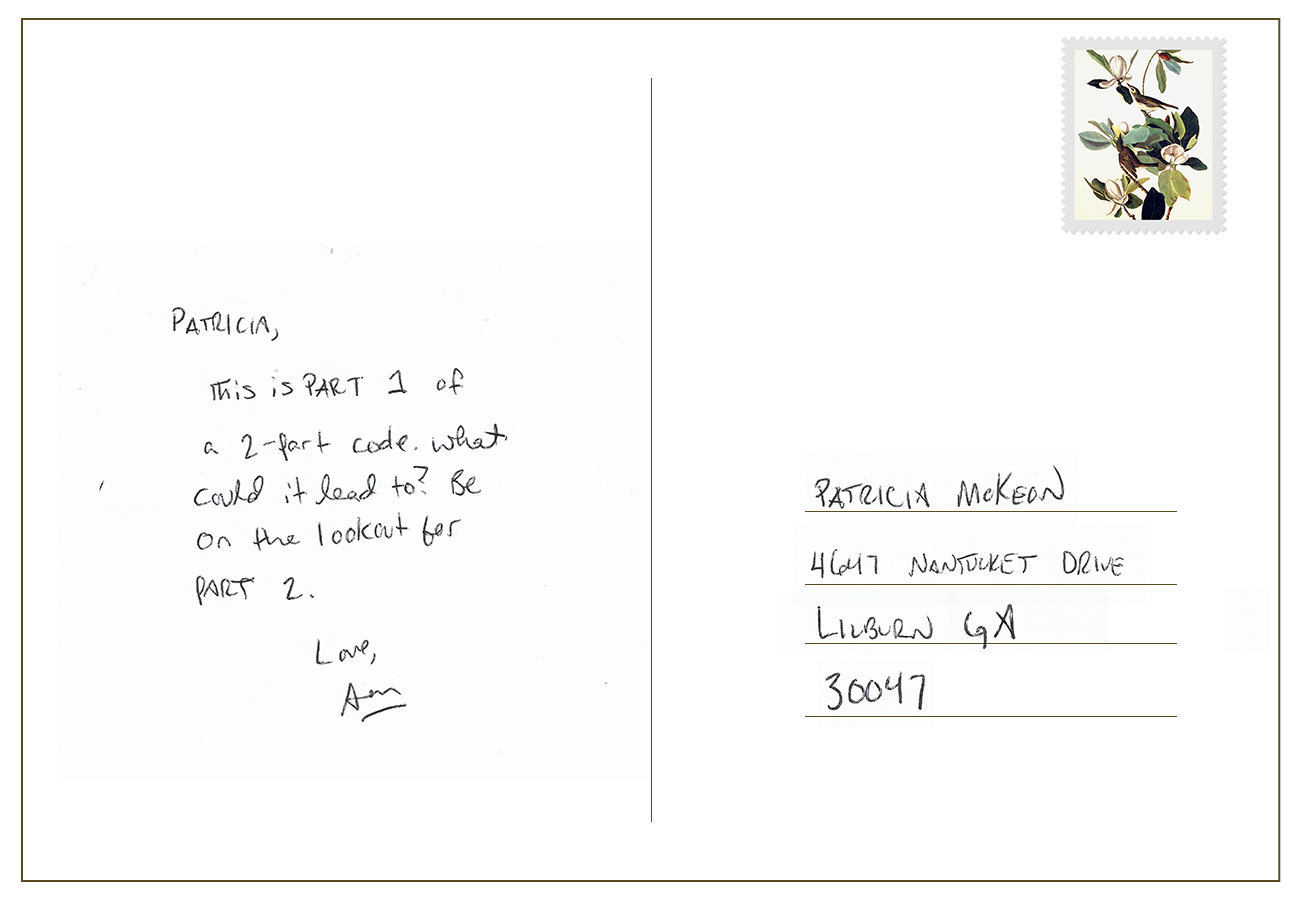 PATRICIA,
This is PART 1 of
a 2-part code. what
could it lead to? Be
on the lookout for
PART 2.
Love,
Ann
PATRICIA McKEON
4647 NANTUCKET DRIVE
LILBURN GA
30047